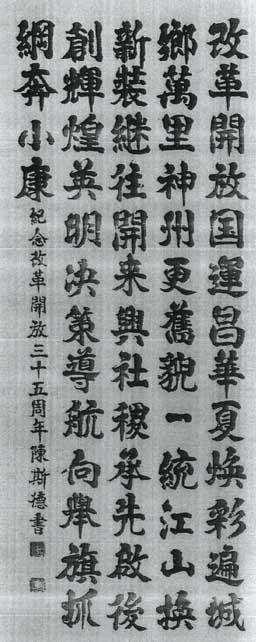 改革開放国運昌華夏焕彩遍城
鄉萬里神州更舊貌一統江山换
新裝継往開来興社稷承先啟後
創輝煌英明决策導航向舉旗抓
綱奔小康
紀念改革開放三十五周年陳斯德書